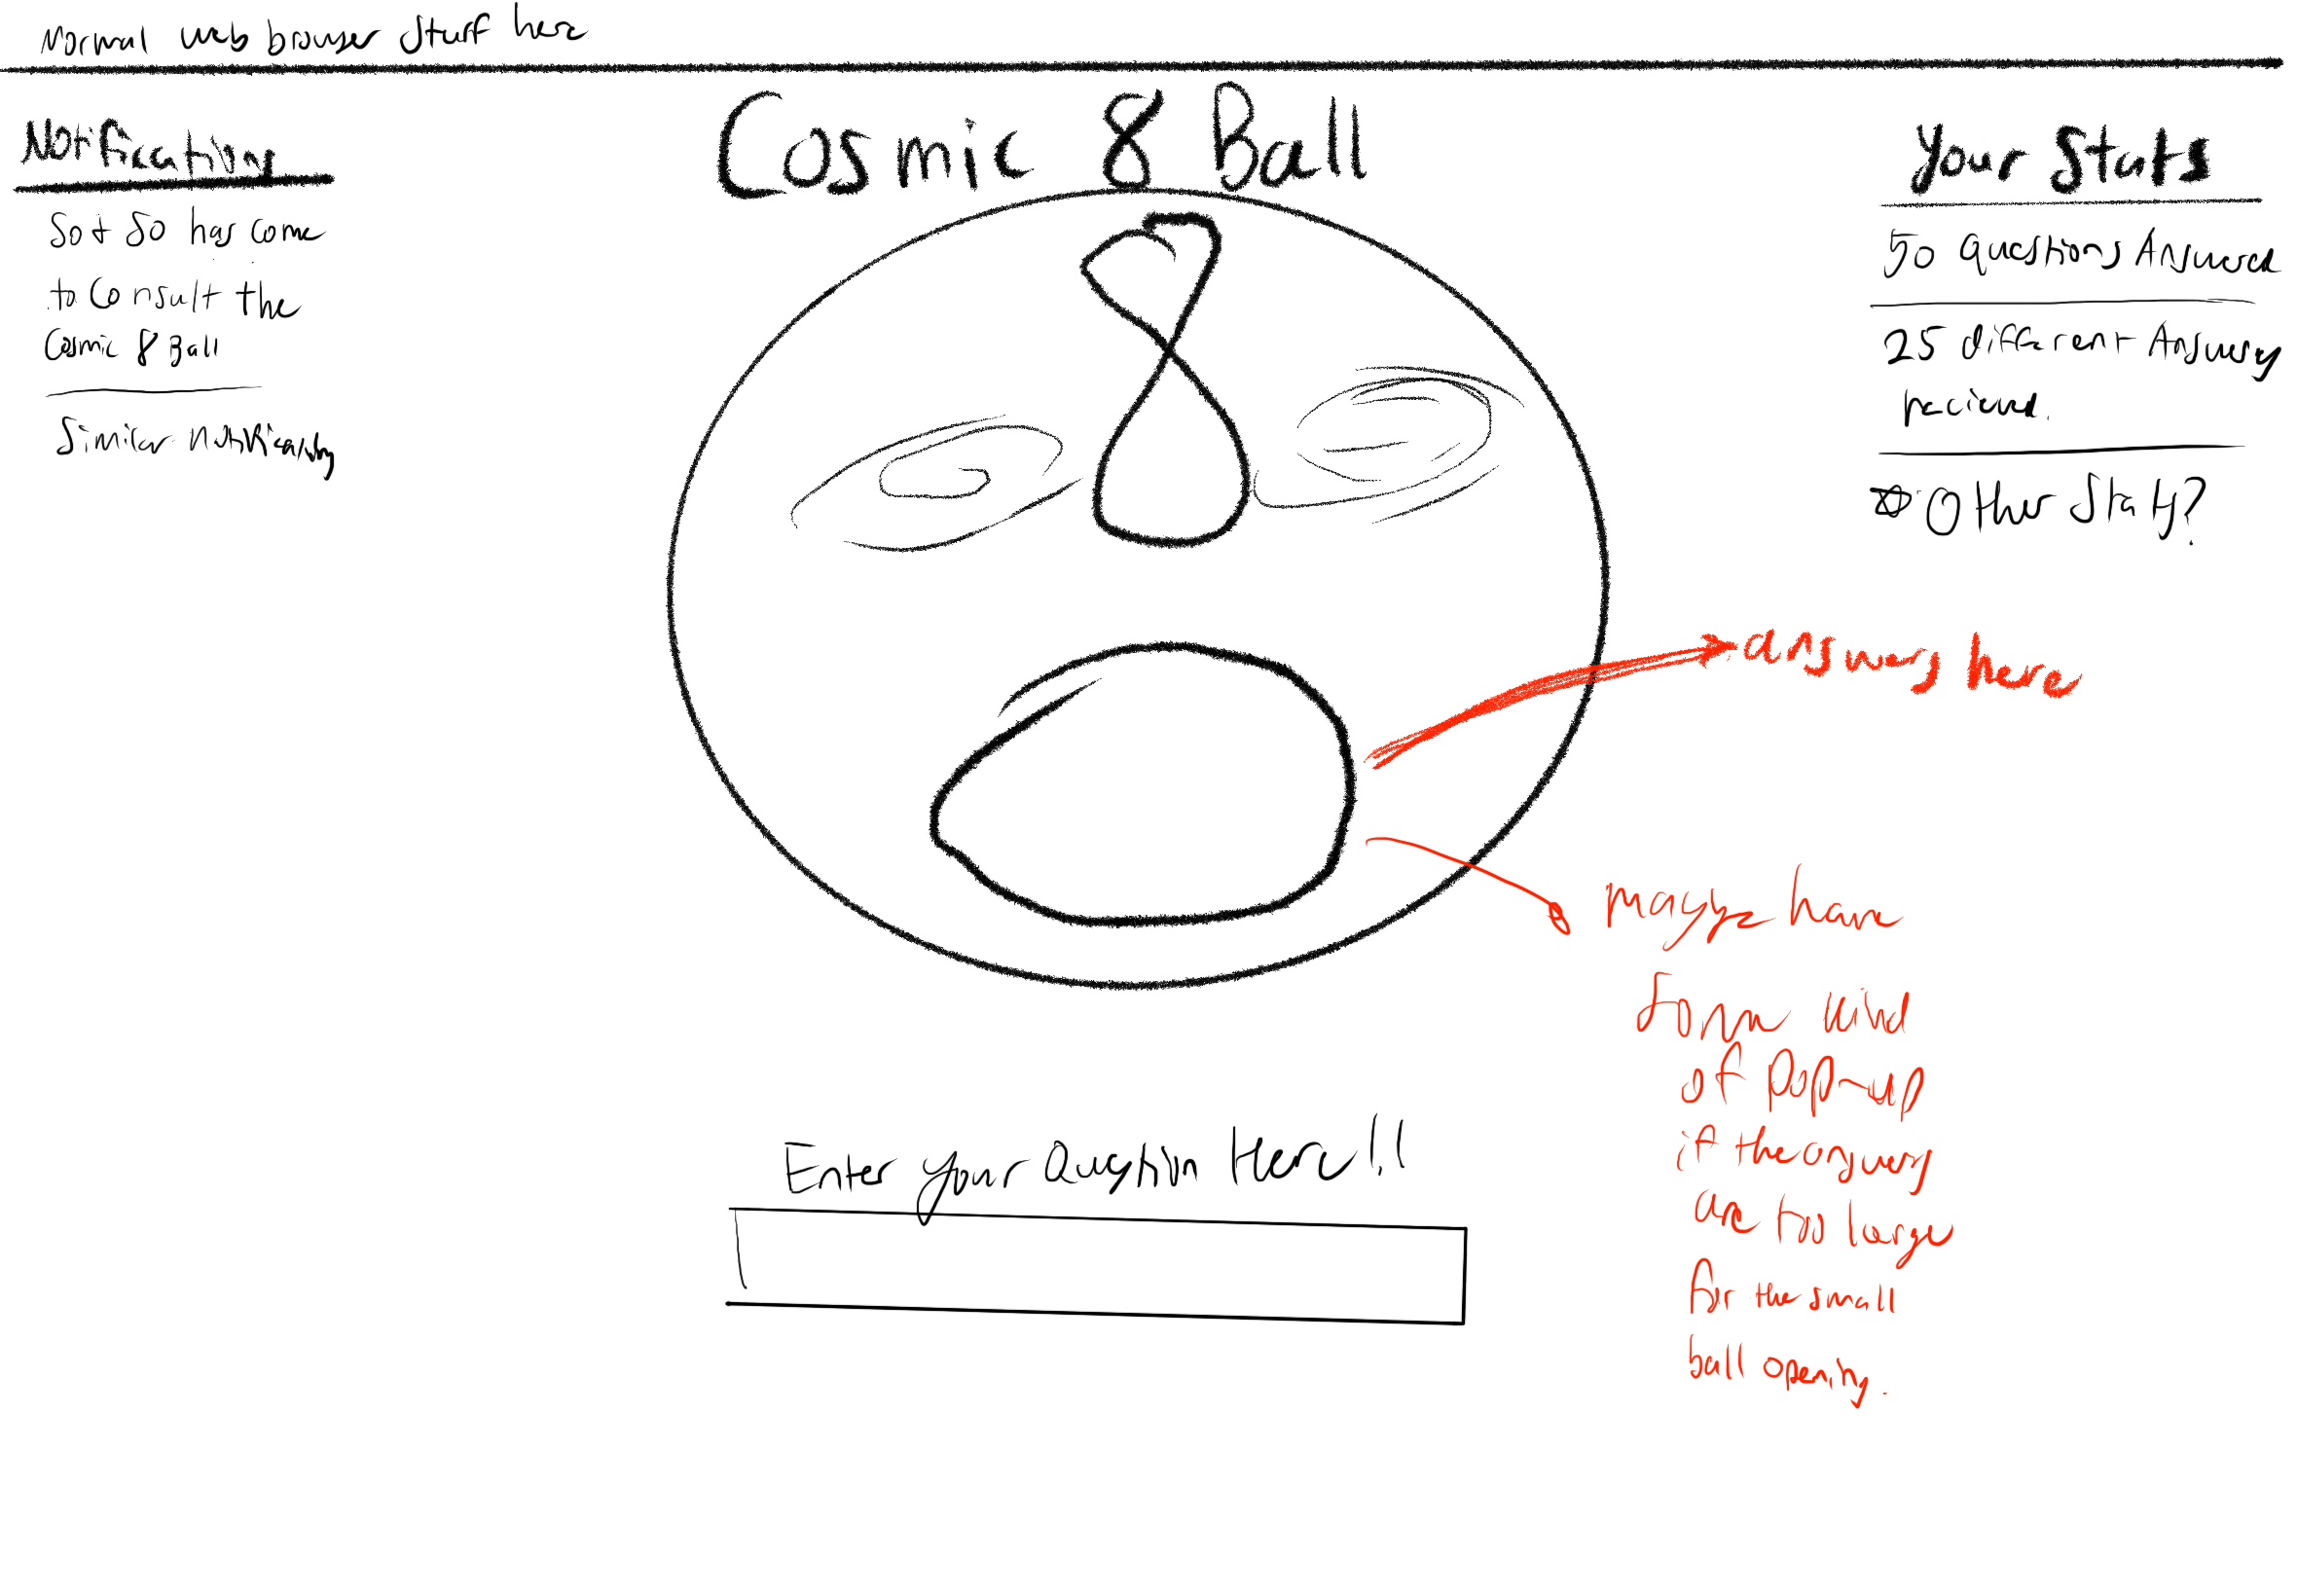 Normal web browser stuff here
Cosmic 8 Ball
Notifications
So + So has come
to Consult the
Cosmic 8 Ball
Similar notifications
Your Stats
50 Questions Answered
25 different Answers
recieved.
Other Stats?
8
answers here
maybe have
some kind
of pop-up
if the answers
are too large
for the small
ball opening.
Enter your Question Here!!